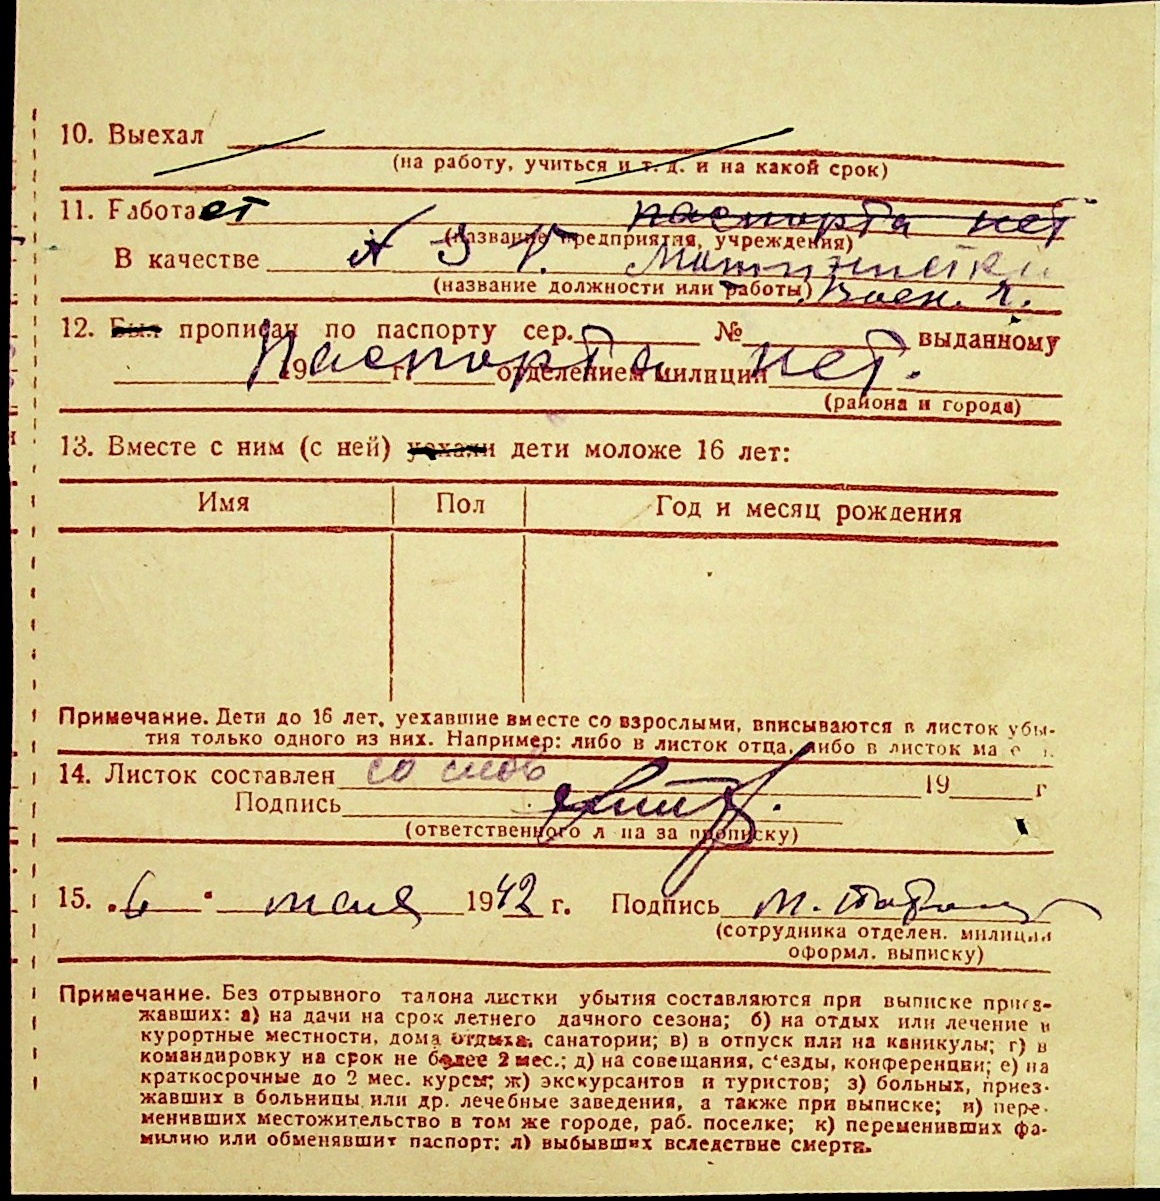 10. Выехал
(на работу, учиться и т. д. и на какой срок)
11. Работает паспорта нет
(название предприятия, учреждения)
В качестве
(название должности или работы) Воен.
12. Был прописан по паспорту сер. № выданному
Паспорта нет.
19 г. отделением милиции
(района и города)
13. Вместе с ним (с ней) уехали дети моложе 16 лет:
Имя Пол Год и месяц рождения
Примечание. Дети до 16 лет, уехавшие вместе со взрослыми, вписываются в листок убы-
тия только одного из них. Например: либо в листок отца, либо в листок
14. Листок составлен со слов 19 г
Подпись
(ответственного л на за прописку)
15. „6 " мая 1942 г. Подпись М.
(сотрудника отделен. милиции
оформл. выписку)
Примечание. Без отрывного талона листки убытия составляются при выписке приез-
жавших: а) на дачи на срок летнего дачного сезона; б) на отдых или лечение в
курортные местности, дома отдыха, санатории; в) в отпуск или на каникулы; г) в
командировку на срок не более 2 мес.; д) на совещания, с'езды, конференции; е) на
краткосрочные до 2 мес. курсы; ж) экскурсантов и туристов; з) больных, приез-
жавших в больницы или др. лечебные заведения, а также при выписке; и) пере-
менивших местожительство в том же городе, раб. поселке; к) переменивших фа-
милию или обменявшит паспорт; л) выбывших вследствие смерти.